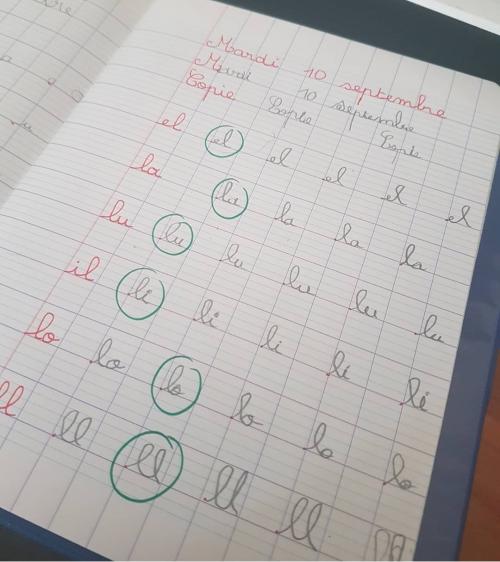 Mardi 10 septembre
Mardi 10 septembre
Copie Copie Copie
el el el el el el
la la la la la
lu lu lu lu lu lu
il li li li li li
lo lo lo lo lo lo
ll ll ll ll ll